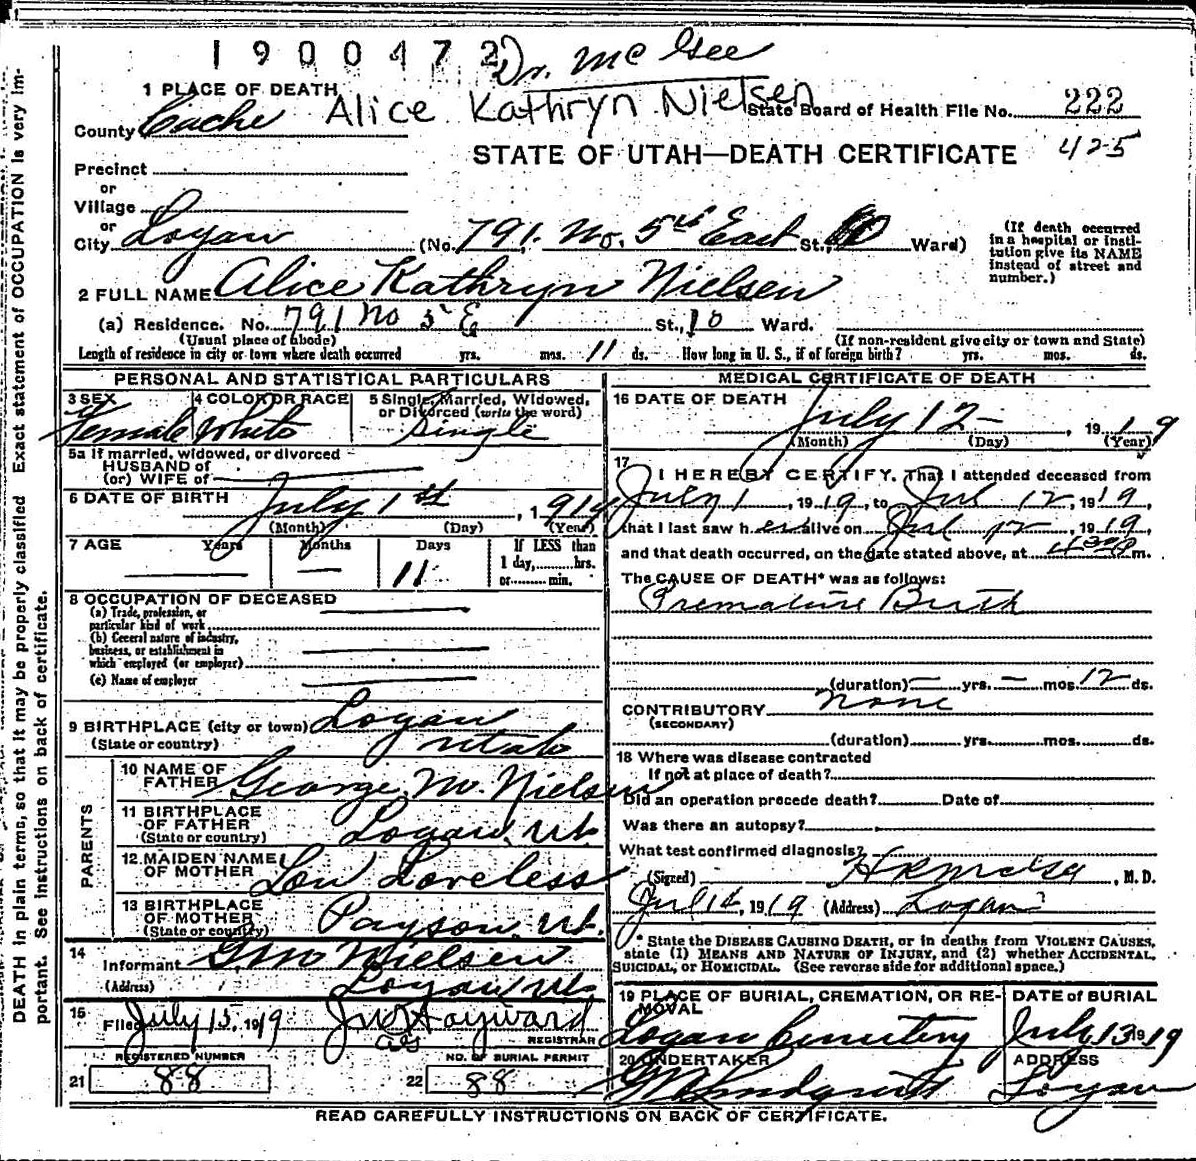 1900472 Dr. McGee
1 PLACE OF DEATH Alice Kathryn Nielsen State Board of Health File No. 222
County Cache
STATE OF UTAH—DEATH CERTIFICATE 425
Precinct
or
Village
or
City Logan (No. 791. No. 5th East St., 10 Ward)
(If death occurred in a hospital or institution give its NAME instead of street and number.)
2 FULL NAME Alice Kathryn Nielsen
(a) Residence. No. 791 No 5 E St., 10 Ward.
(Usual place of abode) (If non-resident give city or town and State)
Length of residence in city or town where death occurred yrs. mos. 11 ds. How long in U. S., if of foreign birth? yrs. mos. ds.
PERSONAL AND STATISTICAL PARTICULARS
3 SEX 4 COLOR OR RACE 5 Single, Married, Widowed,
or Divorced (write the word)
Female White Single
5a If married, widowed, or divorced
HUSBAND of
(or) WIFE of
6 DATE OF BIRTH July 1st, 1919
(Month) (Day) (Year)
7 AGE Years Months Days If LESS than
1 day, hrs.
11 or min.
8 OCCUPATION OF DECEASED
(a) Trade, profession, or
particular kind of work
(b) General nature of industry,
business, or establishment in
which employed (or employer)
(c) Name of employer
9 BIRTHPLACE (city or town) Logan
(State or country) Utah
PARENTS
10 NAME OF
FATHER George M. Nielsen
11 BIRTHPLACE
OF FATHER Logan, Ut.
(State or country)
12 MAIDEN NAME
OF MOTHER Lou Loveless
13 BIRTHPLACE
OF MOTHER Payson, Ut.
(State or country)
14 Informant G M Nielsen
(Address) Logan Ut.
15 Filed July 15, 1919 Hayward
REGISTRAR
REGISTERED NUMBER NO. OF BURIAL PERMIT
21 88 22 88
MEDICAL CERTIFICATE OF DEATH
16 DATE OF DEATH
July 12, 1919
(Month) (Day) (Year)
17 I HEREBY CERTIFY, That I attended deceased from
July 1, 1919, to Jul 12, 1919
that I last saw her alive on Jul 12, 1919,
and that death occurred, on the date stated above, at m.
The CAUSE OF DEATH* was as follows:
Premature Birth
(duration) yrs. mos. 12 ds.
CONTRIBUTORY None
(SECONDARY)
(duration) yrs. mos. ds.
18 Where was disease contracted
If not at place of death?
Did an operation precede death? Date of
Was there an autopsy?
What test confirmed diagnosis?
(Signed) , M. D.
Jul, 1919 (Address) Logan
* State the DISEASE CAUSING DEATH, or in deaths from VIOLENT CAUSES,
state (1) MEANS AND NATURE OF INJURY, and (2) whether ACCIDENTAL,
SUICIDAL, or HOMICIDAL. (See reverse side for additional space.)
19 PLACE OF BURIAL, CREMATION, OR RE- DATE of BURIAL
MOVAL
Logan Cemetery July 13 1919
20 UNDERTAKER ADDRESS
Logan
READ CAREFULLY INSTRUCTIONS ON BACK OF CERTIFICATE.
DEATH in plain terms, so that it may be properly classified. Exact statement of OCCUPATION is very im-
portant. See instructions on back of certificate.